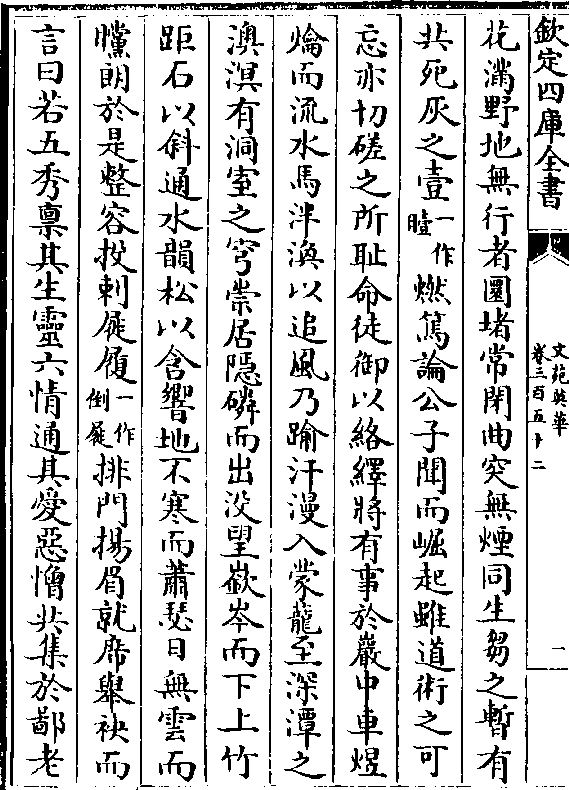 欽定四庫全書
文苑英華
卷三百五十二
一
花滿野地無行者圜堵常閉曲突無煙同生芻之暫有
共死灰之壹一作瞳燃篤論公子聞而崛起雖道術之可
忘亦切磋之所恥命徒御以絡繹將有事於巖中車熤
爚而流水馬泮渙以追風乃踰汗漫入蒙龍至深潭之
澳淏有洞室之穹崇居隱磷而出没望嶔岑而下上竹
距石以斜通水韻松以含響地不寒而蕭瑟日無雲而
矘朗於是整容投刺屣履一作倒屣排門揚眉就席舉袂而
言曰若五秀禀其生靈六情通其愛惡憎共集於鄙老